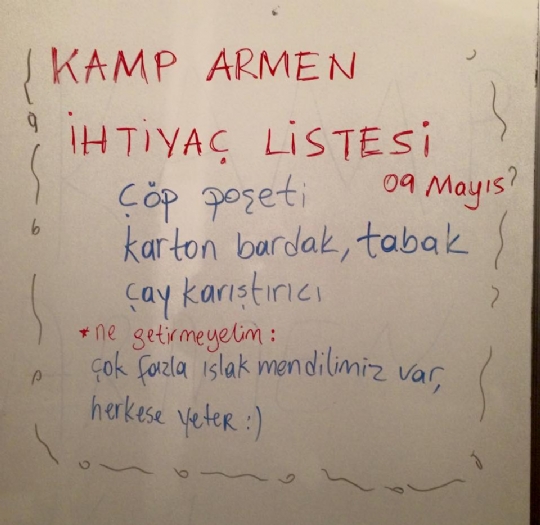 KAMP ARMEN
İHTİYAÇ LİSTESİ
09 Mayıs
çöp poşeti
karton bardak, tabak
çay karıştırıcı
*ne getirmeyelim:
çok fazla ıslak mendilimiz var,
herkese yeter :)